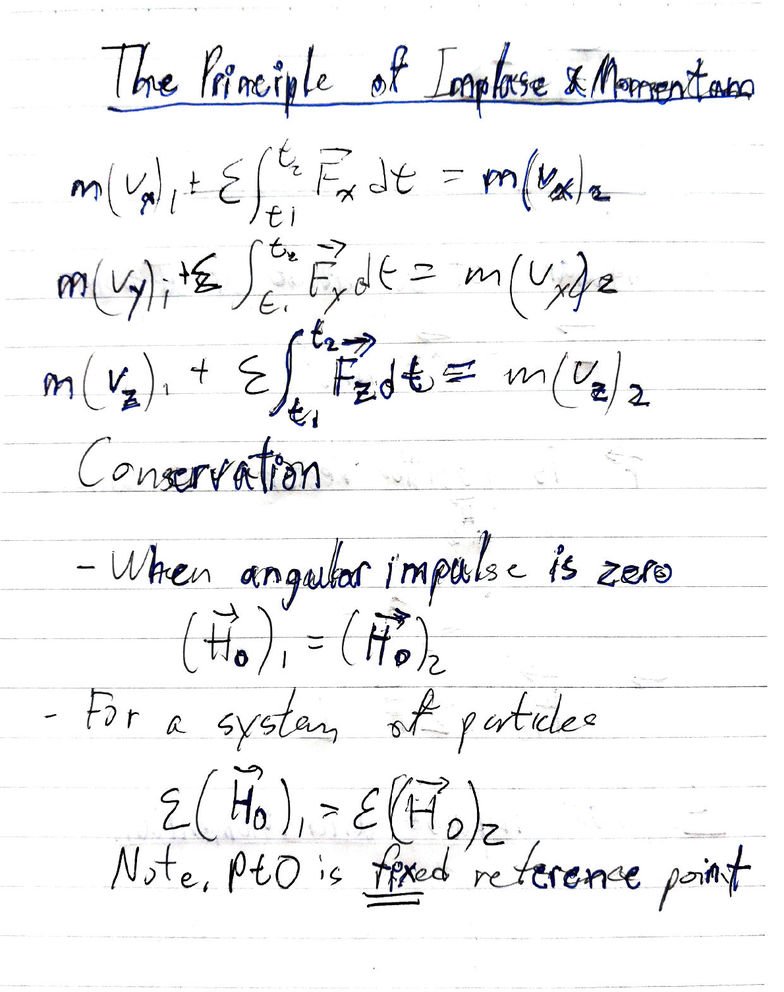 The Principle of Implose & Momentum
m(vₓ)₁ + Σ∫ₜ₁ᵗ² F⃗ₓ dt = m(vₓ)₂
m(vy)₁ + Σ∫ₜ₁ᵗ² F⃗y dt = m(vₓ)₂
m(vz)₁ + Σ∫ₜ₁ᵗ² F⃗z dt = m(vz)₂
Conservation
- When angular impulse is zero
(H⃗₀)₁ = (H⃗₀)₂
- For a system of particles
Σ(H⃗₀)₁ = Σ(H⃗₀)₂
Note, pt O is fixed reference point